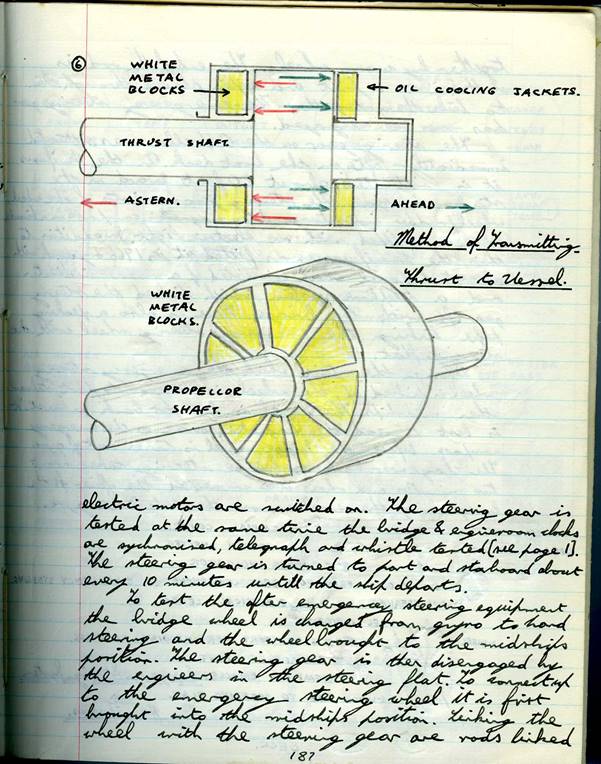 ⑥
WHITE
METAL
BLOCKS
OIL COOLING JACKETS.
THRUST SHAFT.
ASTERN.
AHEAD
Method of Transmitting
Thrust to Vessel.
WHITE
METAL
BLOCKS.
PROPELLOR
SHAFT.
electric motors are switched on. The steering gear is
tested at the same time the bridge & engineroom clocks
are sychronised, telegraph and whistle tested (see page 1).
The steering gear is turned to port and staboard about
every 10 minutes untill the ship departs.
To test the after emergency steering equipment
the bridge wheel is changed from gyro to hand
steering and the wheel brought to the midships
position. The steering gear is then disengaged by
the engineers in the steering flat. To connect up
to the emergency steering wheel it is first
brought into the midships position. Linking the
wheel with the steering gear are rods linked
187